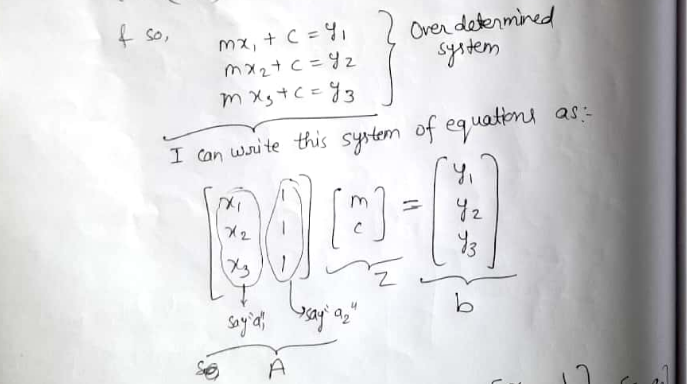 & so,
mx₁ + c = y₁
mx₂ + c = y₂
mx₃ + c = y₃
Over determined
system
I can write this system of equations as:-
[x₁ 1] [m] = [y₁]
[x₂ 1] [c] [y₂]
[x₃ 1] [y₃]
Z
b
say "a₁" say "a₂"
so A